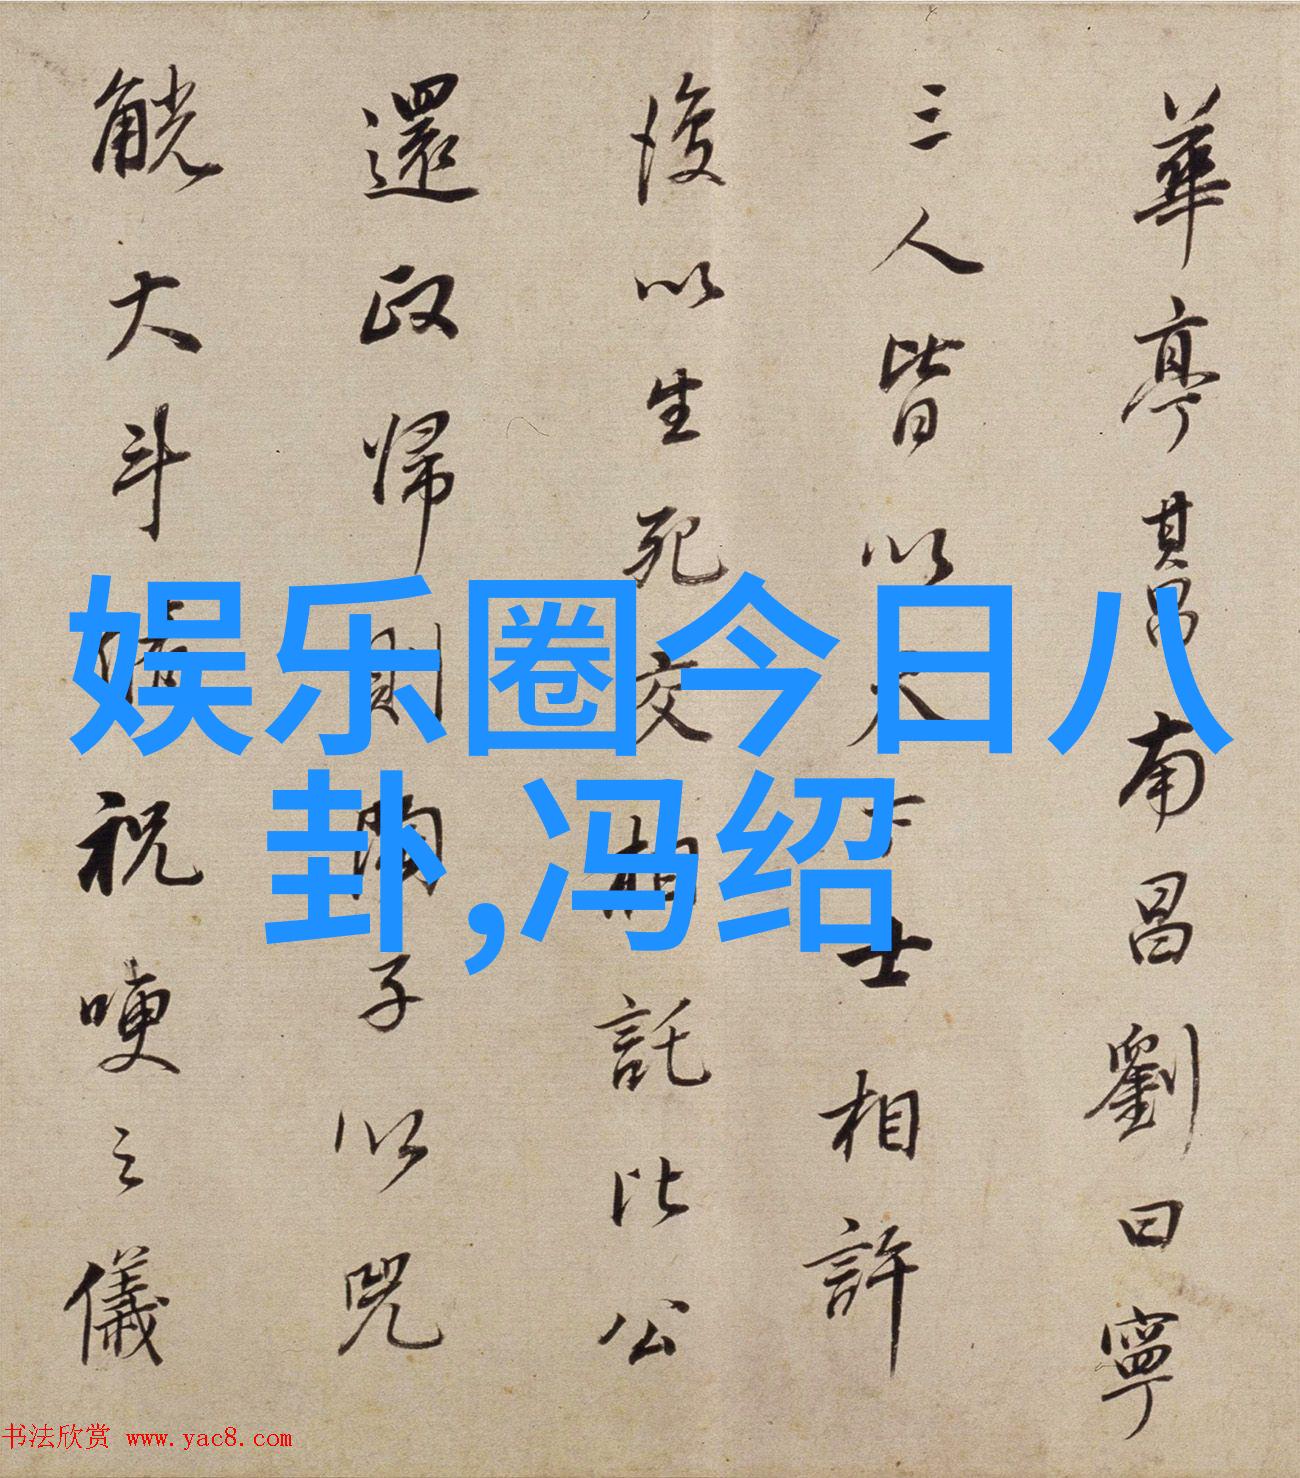 華亭其昌南昌劉曰寧
三人皆以天下士相許
後以生死交相託比公
還政歸則陶子以兕
觥大斗祝哽之儀
娱乐圈今日八
卦,冯绍
书法欣赏 www.yac8.com